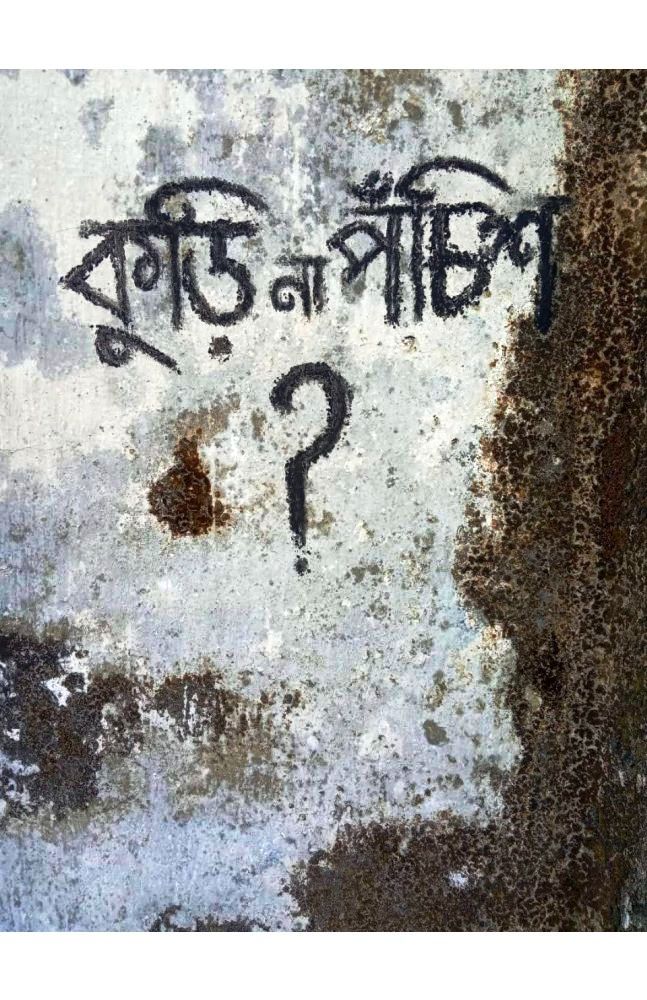 কুড়ি না পঁচিশ
?